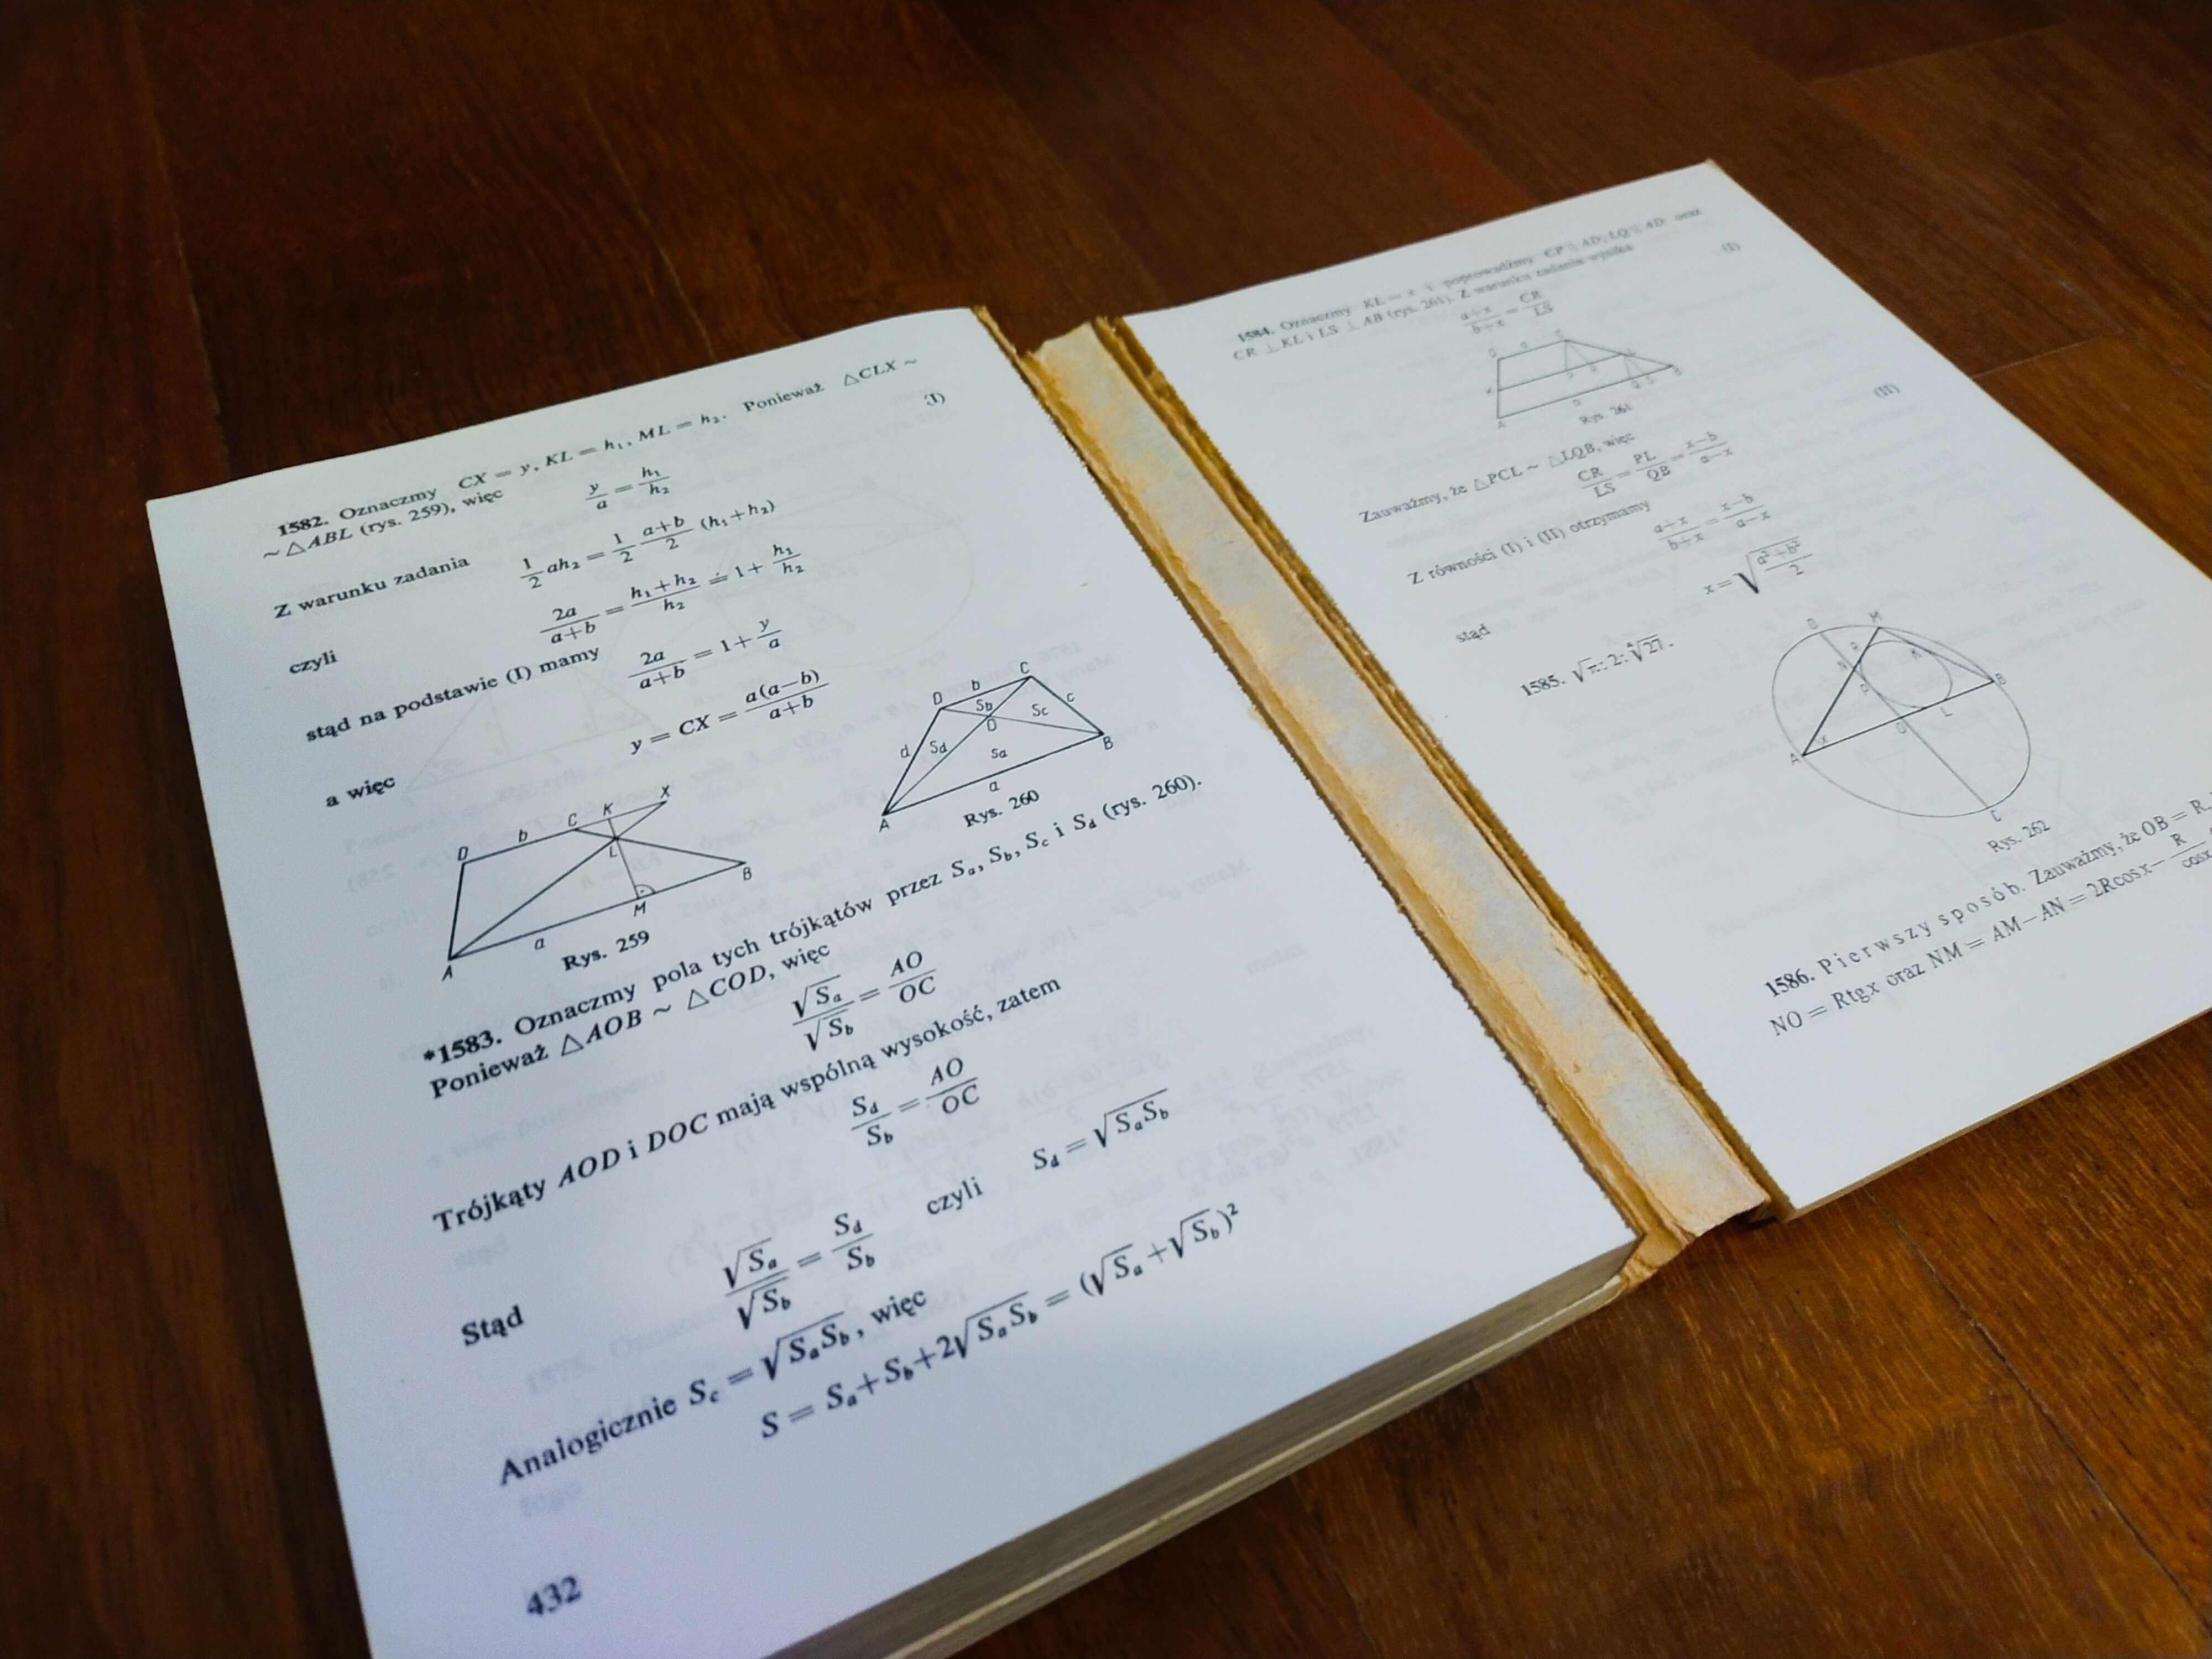 1582. Oznaczmy CX = y, KL = h₁, ML = h₂. Ponieważ △CLX ~
~ △ABL (rys. 259), więc
y/a = h₁/h₂ (I)
Z warunku zadania
1/2 ah₂ = 1/2 (a+b)/2 (h₁+h₂)
czyli
2a/(a+b) = (h₁+h₂)/h₂ = 1+ h₁/h₂
stąd na podstawie (I) mamy
2a/(a+b) = 1+ y/a
a więc
y = CX = a(a−b)/(a+b)
D b C K X
L
A a M B
Rys. 259
D b C
Sb c
d Sd O Sc
Sa
A a B
Rys. 260
*1583. Oznaczmy pola tych trójkątów przez Sₐ, S_b, S_c i S_d (rys. 260).
Ponieważ △AOB ~ △COD, więc
√Sₐ/√S_b = AO/OC
Trójkąty AOD i DOC mają wspólną wysokość, zatem
S_d/S_b = AO/OC
Stąd
√Sₐ/√S_b = S_d/S_b czyli S_d = √(SₐS_b)
Analogicznie S_c = √(SₐS_b), więc
S = Sₐ+S_b+2√(SₐS_b) = (√Sₐ+√S_b)²
432
1584. Oznaczmy KL = x i poprowadźmy CP ∥ AD, LQ ∥ AD oraz
CR ⊥ KL i LS ⊥ AB (rys. 261). Z warunku zadania wynika
(a+x)/(b+x) = CR/LS (I)
Rys. 261
Zauważmy, że △PCL ~ △LQB, więc
CR/LS = PL/QB = (x−b)/(a−x) (II)
Z równości (I) i (II) otrzymamy
(a+x)/(b+x) = (x−b)/(a−x)
stąd
x = √((a²+b²)/2)
1585. √π : 2 : ⁴√27.
D M
R K
N
P B
L
O
A x
C
Rys. 262
1586. Pierwszy sposób. Zauważmy, że OB = R,
NO = Rtgx oraz NM = AM−AN = 2Rcosx− R/cosx